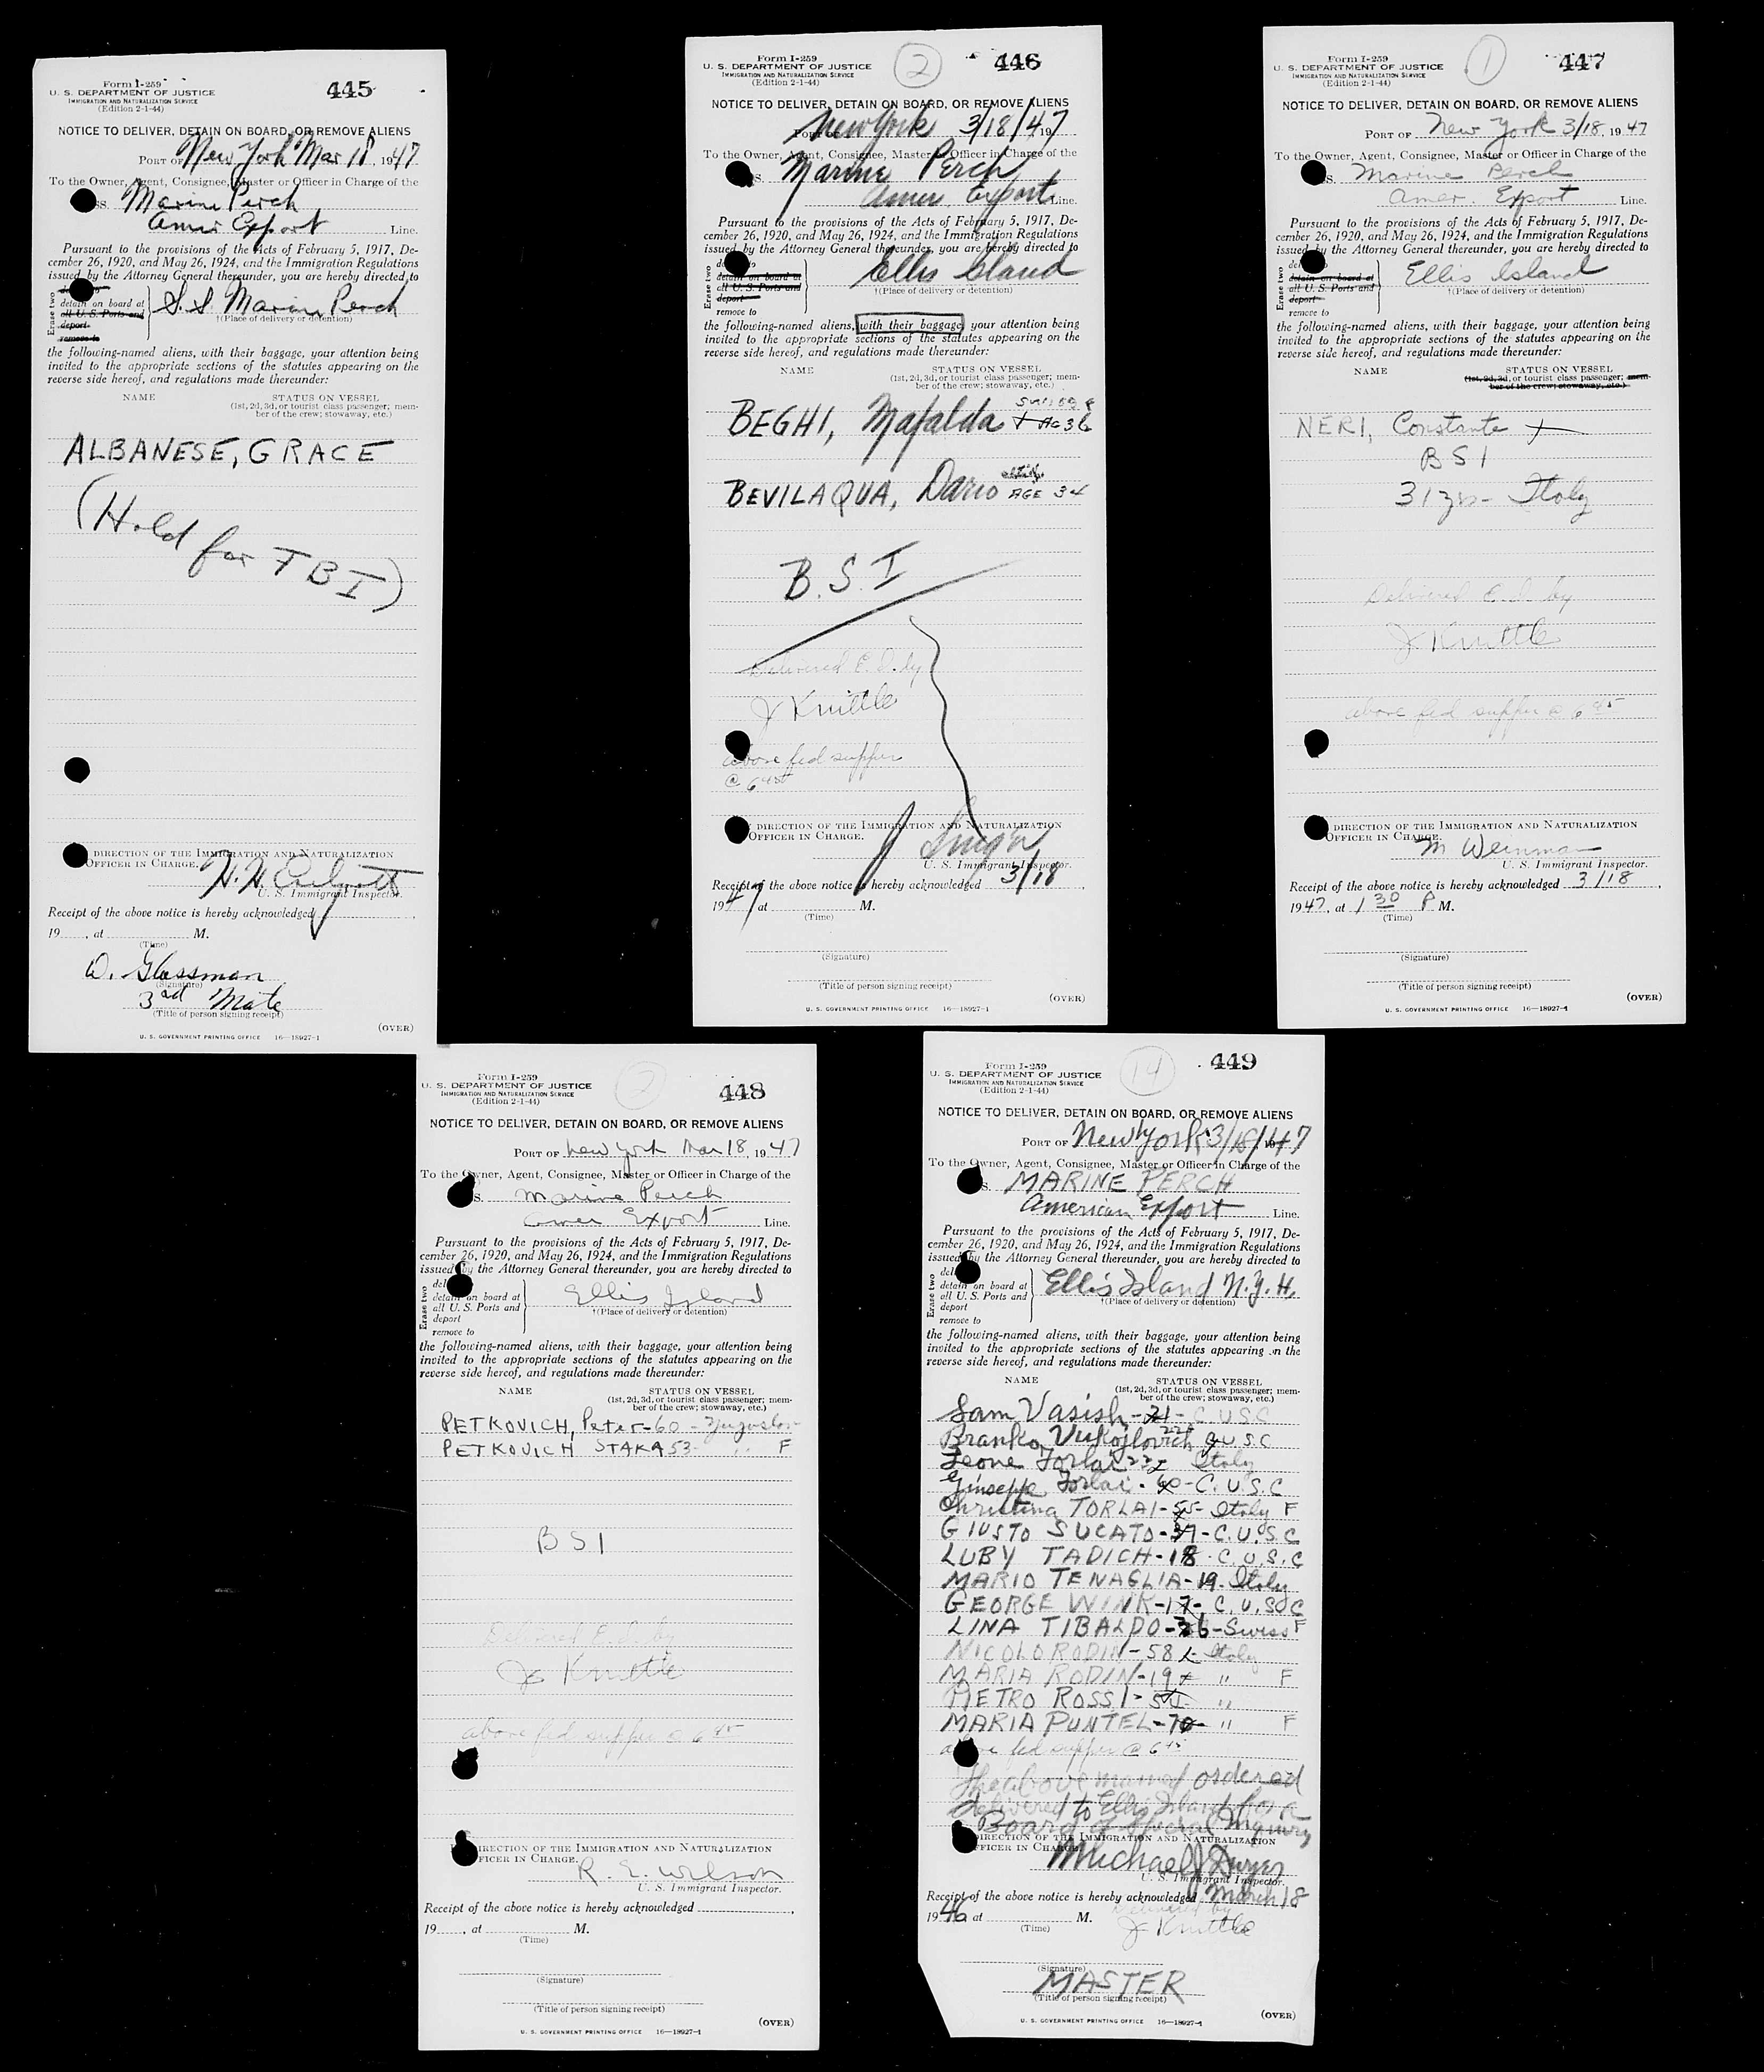 Form I-259
U. S. DEPARTMENT OF JUSTICE
IMMIGRATION AND NATURALIZATION SERVICE
(Edition 2-1-44)
445
NOTICE TO DELIVER, DETAIN ON BOARD, OR REMOVE ALIENS
PORT OF New York Mar 18, 1947
To the Owner, Agent, Consignee, Master or Officer in Charge of the
SS. Marine Perch
Amer Export Line.
Pursuant to the provisions of the Acts of February 5, 1917, De-
cember 26, 1920, and May 26, 1924, and the Immigration Regulations
issued by the Attorney General thereunder, you are hereby directed to
Erase two
detain on board at
all U. S. Ports and
deport
remove to
S.S. Marine Perch
†(Place of delivery or detention)
the following-named aliens, with their baggage, your attention being
invited to the appropriate sections of the statutes appearing on the
reverse side hereof, and regulations made thereunder:
NAME STATUS ON VESSEL
(1st, 2d, 3d, or tourist class passenger; mem-
ber of the crew; stowaway, etc.)
ALBANESE, GRACE
(Hold for FBI)
DIRECTION OF THE IMMIGRATION AND NATURALIZATION
OFFICER IN CHARGE.
H. H.
U. S. Immigrant Inspector.
Receipt of the above notice is hereby acknowledged
19 , at M.
(Time)
D. Glassman
(Signature)
3rd Mate
(Title of person signing receipt)
(OVER)
U. S. GOVERNMENT PRINTING OFFICE 16—18927-1
Form I-259
U. S. DEPARTMENT OF JUSTICE
IMMIGRATION AND NATURALIZATION SERVICE
(Edition 2-1-44)
2
446
NOTICE TO DELIVER, DETAIN ON BOARD, OR REMOVE ALIENS
PORT OF New York 3/18/47
To the Owner, Agent, Consignee, Master or Officer in Charge of the
S. Marine Perch
Amer. Export Line.
Pursuant to the provisions of the Acts of February 5, 1917, De-
cember 26, 1920, and May 26, 1924, and the Immigration Regulations
issued by the Attorney General thereunder, you are hereby directed to
Erase two
detain on board at
all U. S. Ports and
deport
remove to
Ellis Island
†(Place of delivery or detention)
the following-named aliens, with their baggage, your attention being
invited to the appropriate sections of the statutes appearing on the
reverse side hereof, and regulations made thereunder:
NAME STATUS ON VESSEL
(1st, 2d, 3d, or tourist class passenger; mem-
ber of the crew; stowaway, etc.)
BEGHI, Mafalda AG 36
BEVILAQUA, Dario AGE 34
B.S.I
Delivered E.I. by
J Knittle
above fed supper
@ 6 45
DIRECTION OF THE IMMIGRATION AND NATURALIZATION
OFFICER IN CHARGE.
U. S. Immigrant Inspector.
Receipt of the above notice is hereby acknowledged 3/18,
1947 at M.
(Time)
(Signature)
(Title of person signing receipt)
(OVER)
U. S. GOVERNMENT PRINTING OFFICE 16—18927-1
Form I-259
U. S. DEPARTMENT OF JUSTICE
IMMIGRATION AND NATURALIZATION SERVICE
(Edition 2-1-44)
1
447
NOTICE TO DELIVER, DETAIN ON BOARD, OR REMOVE ALIENS
PORT OF New York 3/18, 1947
To the Owner, Agent, Consignee, Master or Officer in Charge of the
S. Marine Perch
Amer. Export Line.
Pursuant to the provisions of the Acts of February 5, 1917, De-
cember 26, 1920, and May 26, 1924, and the Immigration Regulations
issued by the Attorney General thereunder, you are hereby directed to
Erase two
detain on board at
all U. S. Ports and
deport
remove to
Ellis Island
†(Place of delivery or detention)
the following-named aliens, with their baggage, your attention being
invited to the appropriate sections of the statutes appearing on the
reverse side hereof, and regulations made thereunder:
NAME STATUS ON VESSEL
(1st, 2d, 3d, or tourist class passenger; mem-
ber of the crew; stowaway, etc.)
NERI, Constante
BSI
31 yrs - Italy
Delivered E.I. by
J. Knittle
above fed supper @ 6 45
DIRECTION OF THE IMMIGRATION AND NATURALIZATION
OFFICER IN CHARGE.
M Weinman
U. S. Immigrant Inspector.
Receipt of the above notice is hereby acknowledged 3/18,
1947, at 1 30 P M.
(Time)
(Signature)
(Title of person signing receipt)
(OVER)
U. S. GOVERNMENT PRINTING OFFICE 16—18927-1
Form I-259
U. S. DEPARTMENT OF JUSTICE
IMMIGRATION AND NATURALIZATION SERVICE
(Edition 2-1-44)
2
448
NOTICE TO DELIVER, DETAIN ON BOARD, OR REMOVE ALIENS
PORT OF New York Mar 18, 1947
To the Owner, Agent, Consignee, Master or Officer in Charge of the
S. Marine Perch
Amer Export Line.
Pursuant to the provisions of the Acts of February 5, 1917, De-
cember 26, 1920, and May 26, 1924, and the Immigration Regulations
issued by the Attorney General thereunder, you are hereby directed to
Erase two
detain on board at
all U. S. Ports and
deport
remove to
Ellis Island
†(Place of delivery or detention)
the following-named aliens, with their baggage, your attention being
invited to the appropriate sections of the statutes appearing on the
reverse side hereof, and regulations made thereunder:
NAME STATUS ON VESSEL
(1st, 2d, 3d, or tourist class passenger; mem-
ber of the crew; stowaway, etc.)
PETKOVICH, Peter - 60 - Yugoslav
PETKOVICH STAKA 53 " F
BSI
Delivered E.I. by
J Knittle
above fed supper @ 6 45
DIRECTION OF THE IMMIGRATION AND NATURALIZATION
OFFICER IN CHARGE.
R. E. Wilson
U. S. Immigrant Inspector.
Receipt of the above notice is hereby acknowledged
19 , at M.
(Time)
(Signature)
(Title of person signing receipt)
(OVER)
U. S. GOVERNMENT PRINTING OFFICE 16—18927-1
Form I-259
U. S. DEPARTMENT OF JUSTICE
IMMIGRATION AND NATURALIZATION SERVICE
(Edition 2-1-44)
14
449
NOTICE TO DELIVER, DETAIN ON BOARD, OR REMOVE ALIENS
PORT OF New York 3/18/47
To the Owner, Agent, Consignee, Master or Officer in Charge of the
S. MARINE PERCH
American Export Line.
Pursuant to the provisions of the Acts of February 5, 1917, De-
cember 26, 1920, and May 26, 1924, and the Immigration Regulations
issued by the Attorney General thereunder, you are hereby directed to
Erase two
detain on board at
all U. S. Ports and
deport
remove to
Ellis Island N.Y.H.
†(Place of delivery or detention)
the following-named aliens, with their baggage, your attention being
invited to the appropriate sections of the statutes appearing on the
reverse side hereof, and regulations made thereunder:
NAME STATUS ON VESSEL
(1st, 2d, 3d, or tourist class passenger; mem-
ber of the crew; stowaway, etc.)
Sam Vasish - 21 - C.USC
Branko Vukojlovich USC
Leone Torlai 23 Italy
Giuseppe Torlai - 60 - C.U.S.C
Christina TORLAI - 55 - Italy F
GIUSTO SUCATO - 37 - C.U.S.C
LUBY TADICH - 18 - C.U.S.C
MARIO TENAGLIA - 19 - Italy
GEORGE WINK - 17 - C.U.S.C
LINA TIBALDO - 36 - Swiss F
NICOLO RODIN - 58 Italy
MARIA RODIN - 19 " F
PIETRO ROSSI - 54 "
MARIA PUNTEL - 70 - " F
above fed supper @ 6 45
The above named ordered
delivered to Ellis Island for a
Board of Special Inquiry
DIRECTION OF THE IMMIGRATION AND NATURALIZATION
OFFICER IN CHARGE.
Michael J Dwyer
U. S. Immigrant Inspector.
Receipt of the above notice is hereby acknowledged March 18
1946 at M.
(Time)
Delivered by
J Knittle
(Signature)
MASTER
(Title of person signing receipt)
(OVER)
U. S. GOVERNMENT PRINTING OFFICE 16—18927-1